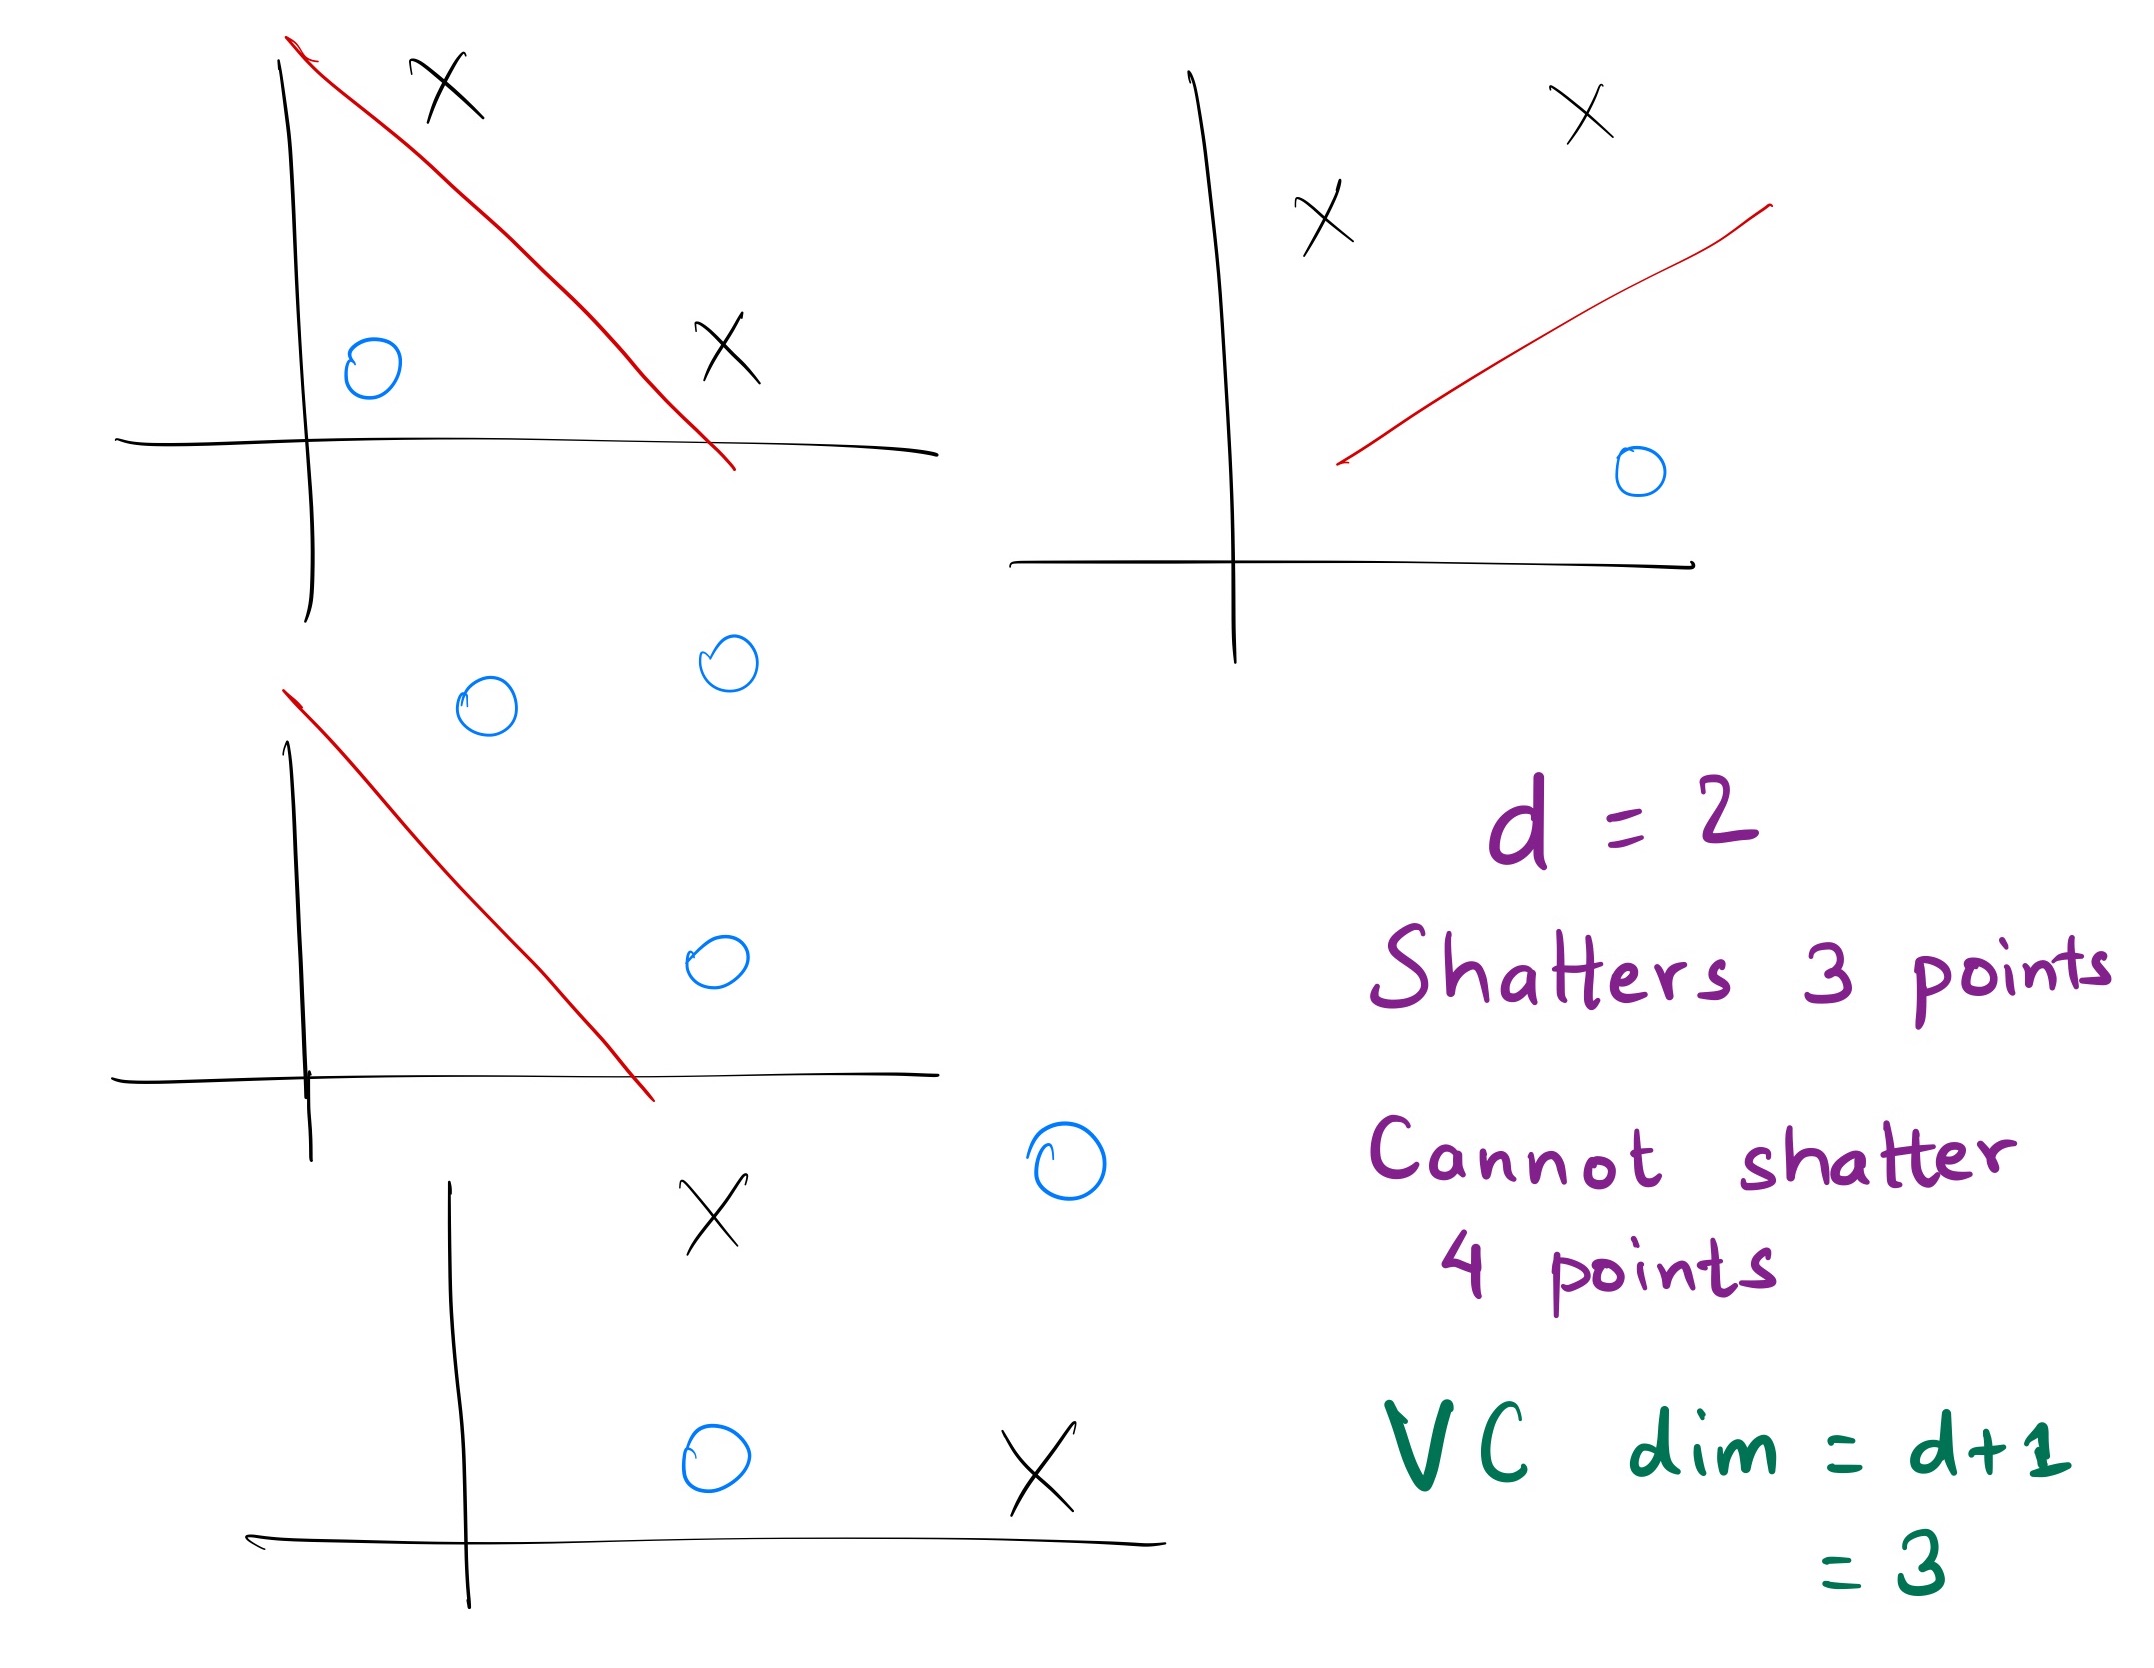 d = 2
Shatters 3 points
Cannot shatter
4 points
VC dim = d+1
= 3